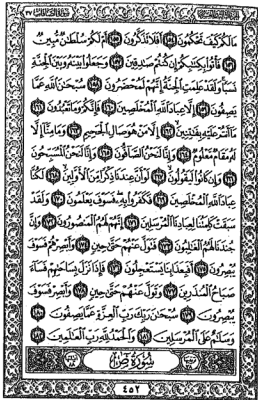 مَا لَكُمْ كَيْفَ تَحْكُمُونَ ۝١٥٤ أَفَلَا تَذَكَّرُونَ ۝١٥٥ أَمْ لَكُمْ سُلْطَانٌ مُّبِينٌ
۝١٥٦ فَأْتُوا بِكِتَابِكُمْ إِن كُنتُمْ صَادِقِينَ ۝١٥٧ وَجَعَلُوا بَيْنَهُ وَبَيْنَ الْجِنَّةِ
نَسَبًا وَلَقَدْ عَلِمَتِ الْجِنَّةُ إِنَّهُمْ لَمُحْضَرُونَ ۝١٥٨ سُبْحَانَ اللَّهِ عَمَّا
يَصِفُونَ ۝١٥٩ إِلَّا عِبَادَ اللَّهِ الْمُخْلَصِينَ ۝١٦٠ فَإِنَّكُمْ وَمَا تَعْبُدُونَ ۝١٦١
مَا أَنتُمْ عَلَيْهِ بِفَاتِنِينَ ۝١٦٢ إِلَّا مَنْ هُوَ صَالِ الْجَحِيمِ ۝١٦٣ وَمَا مِنَّا إِلَّا
لَهُ مَقَامٌ مَّعْلُومٌ ۝١٦٤ وَإِنَّا لَنَحْنُ الصَّافُّونَ ۝١٦٥ وَإِنَّا لَنَحْنُ الْمُسَبِّحُونَ
۝١٦٦ وَإِن كَانُوا لَيَقُولُونَ ۝١٦٧ لَوْ أَنَّ عِندَنَا ذِكْرًا مِّنَ الْأَوَّلِينَ ۝١٦٨ لَكُنَّا
عِبَادَ اللَّهِ الْمُخْلَصِينَ ۝١٦٩ فَكَفَرُوا بِهِ فَسَوْفَ يَعْلَمُونَ ۝١٧٠ وَلَقَدْ
سَبَقَتْ كَلِمَتُنَا لِعِبَادِنَا الْمُرْسَلِينَ ۝١٧١ إِنَّهُمْ لَهُمُ الْمَنصُورُونَ ۝١٧٢ وَإِنَّ
جُندَنَا لَهُمُ الْغَالِبُونَ ۝١٧٣ فَتَوَلَّ عَنْهُمْ حَتَّىٰ حِينٍ ۝١٧٤ وَأَبْصِرْهُمْ فَسَوْفَ
يُبْصِرُونَ ۝١٧٥ أَفَبِعَذَابِنَا يَسْتَعْجِلُونَ ۝١٧٦ فَإِذَا نَزَلَ بِسَاحَتِهِمْ فَسَاءَ
صَبَاحُ الْمُنذَرِينَ ۝١٧٧ وَتَوَلَّ عَنْهُمْ حَتَّىٰ حِينٍ ۝١٧٨ وَأَبْصِرْ فَسَوْفَ
يُبْصِرُونَ ۝١٧٩ سُبْحَانَ رَبِّكَ رَبِّ الْعِزَّةِ عَمَّا يَصِفُونَ ۝١٨٠
وَسَلَامٌ عَلَى الْمُرْسَلِينَ ۝١٨١ وَالْحَمْدُ لِلَّهِ رَبِّ الْعَالَمِينَ ۝١٨٢
سُورَةُ ص
٤٥٢